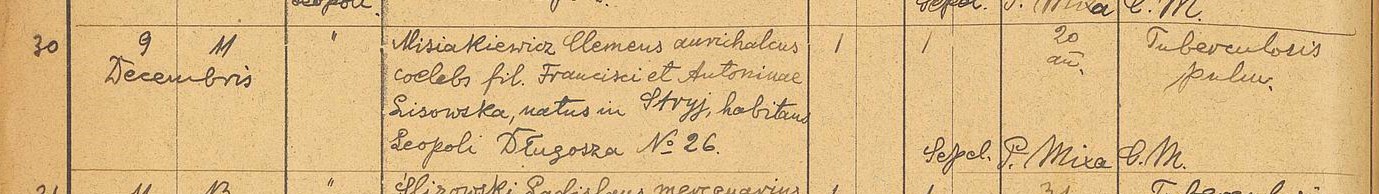 Leopoli. Sepel. P. Mixa C. M.
30 9 11 " Misiakiewicz Clemens aurichalcus 1 1 20 Tuberculosis
Decembris coelebs fil. Francisci et Antoninae an. pulm.
Lisowska, natus in Stryj, habitans
Leopoli Długosza No 26. Sepel. P. Mixa C. M.
11 13 " Ladislaus mercenarius 1 1